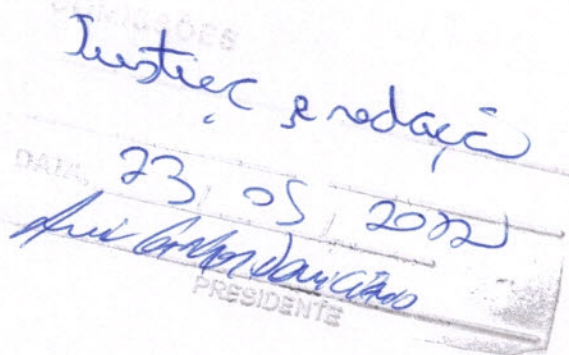 COMISSÕES
Justiça e redação
DATA, 23 / 05 / 2022
PRESIDENTE